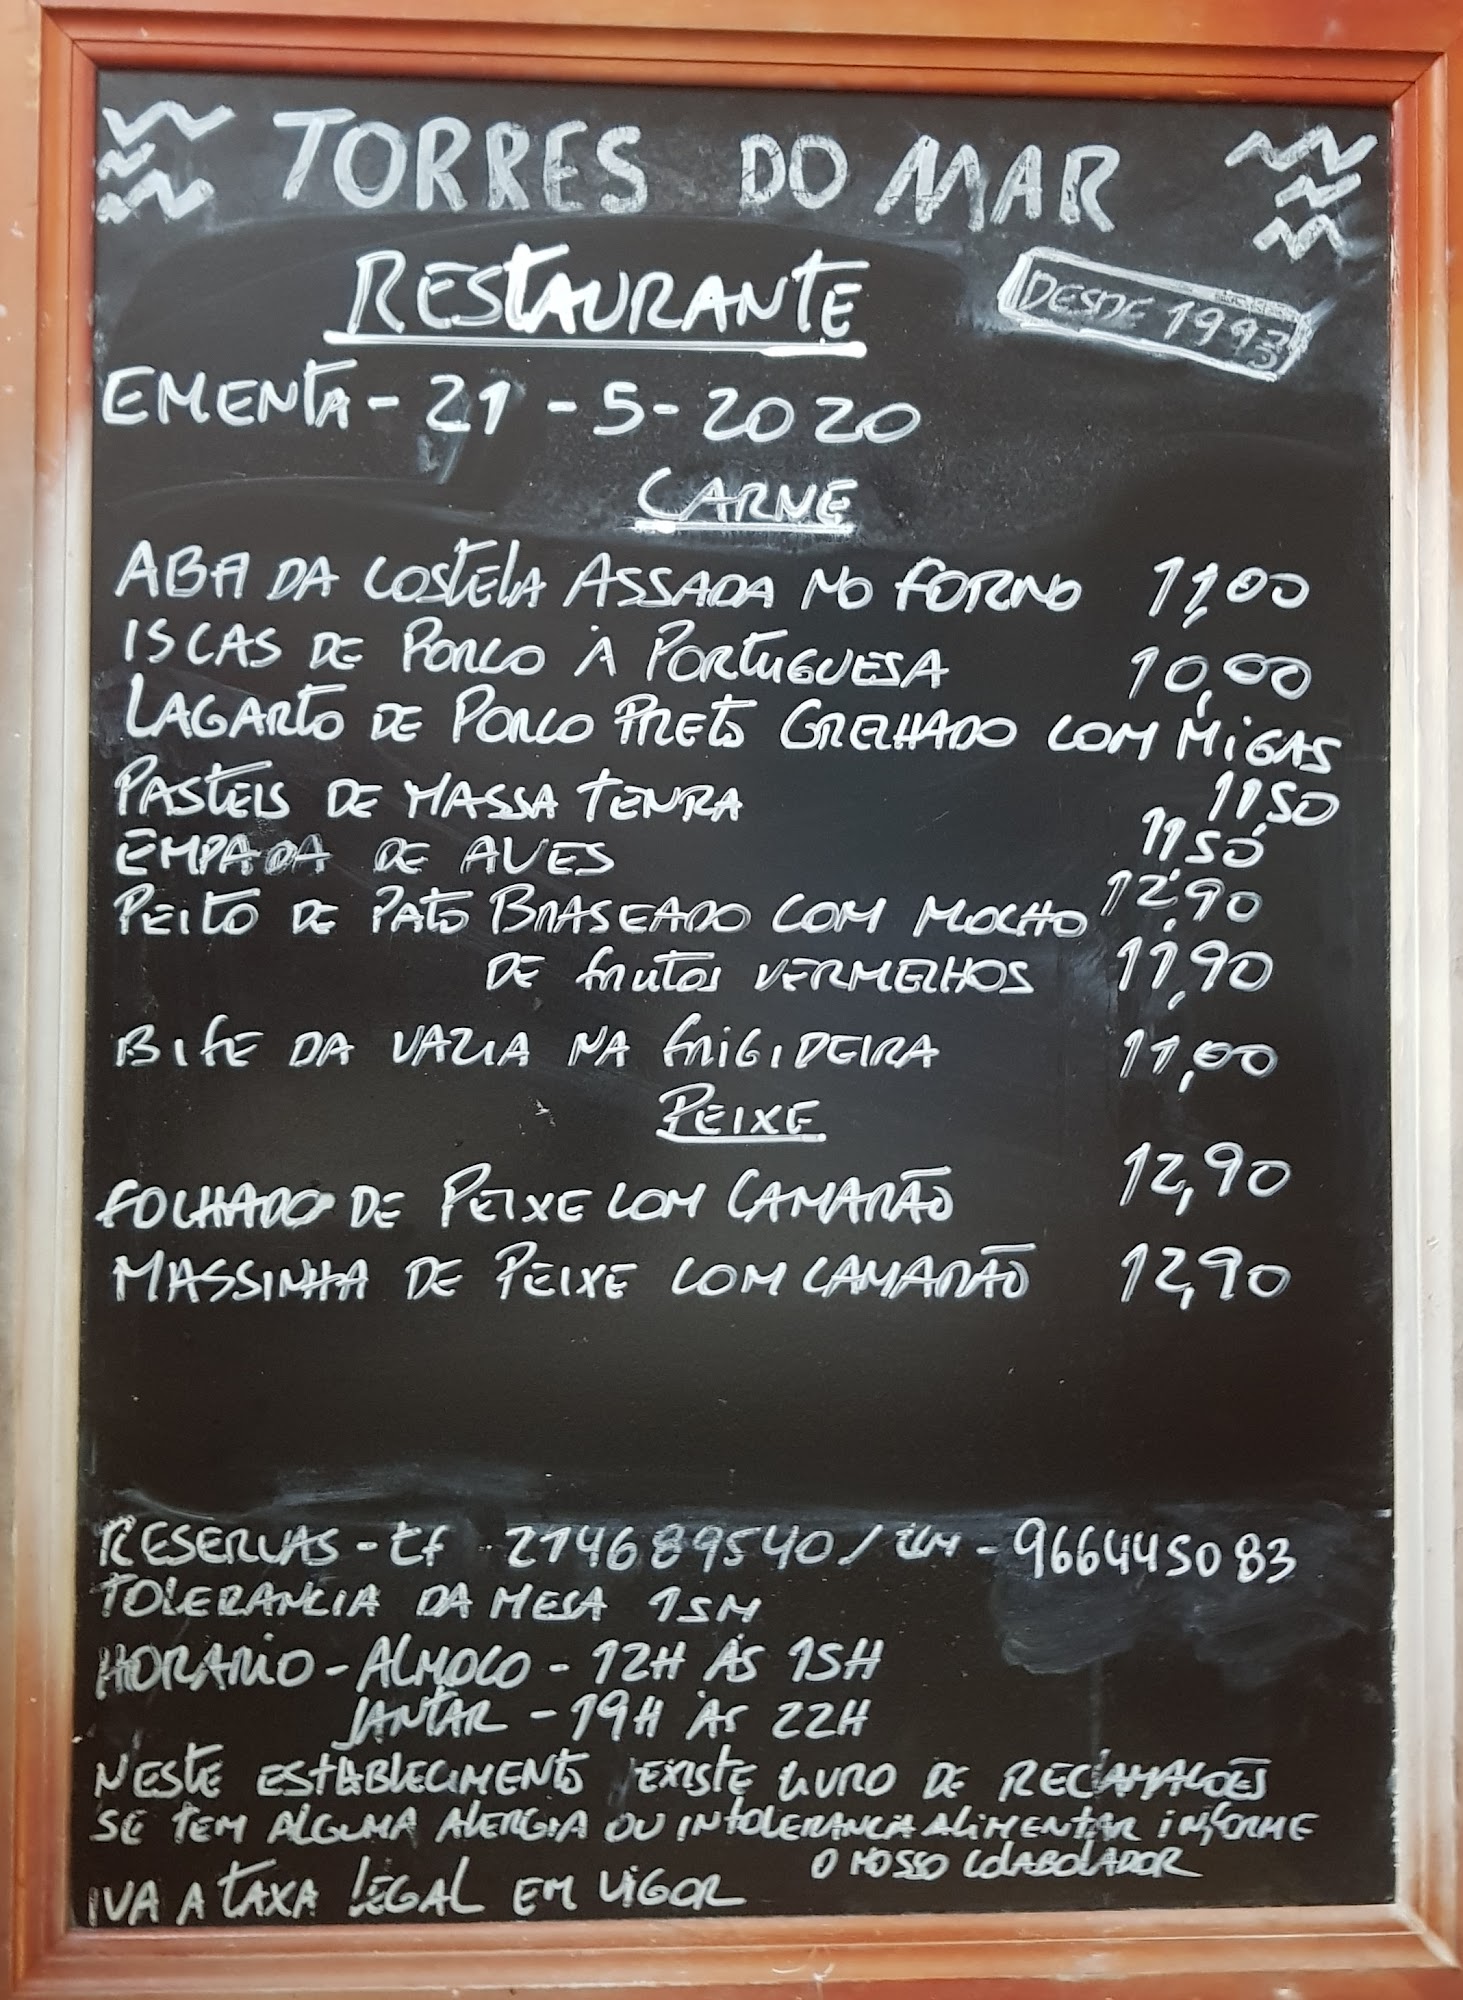 TORRES DO MAR
RESTAURANTE
DESDE 1993
EMENTA - 21 - 5 - 2020
CARNE
ABA DA COSTELA ASSADA NO FORNO 11,00
ISCAS DE PORCO À PORTUGUESA 10,00
LAGARTO DE PORCO PRETO GRELHADO COM MIGAS
11,50
PASTEIS DE MASSA TENRA 11,50
EMPADA DE AVES 12,90
PEITO DE PATO BRASEADO COM MOLHO
DE FRUTOS VERMELHOS 11,90
BIFE DA VAZIA NA FRIGIDEIRA 11,00
PEIXE
FOLHADO DE PEIXE COM CAMARÃO 12,90
MASSINHA DE PEIXE COM CAMARÃO 12,90
RESERVAS - Tf 214689540 / TLM - 966445083
TOLERANCIA DA MESA 15M
HORARIO - ALMOCO - 12H ÀS 15H
JANTAR - 19H ÀS 22H
NESTE ESTABLECIMENTO EXISTE LIVRO DE RECLAMAÇÕES
SE TEM ALGUMA ALERGIA OU INTOLERANCIA ALIMENTAR INFORME
O NOSSO COLABOLADOR
IVA A TAXA LEGAL EM VIGOR